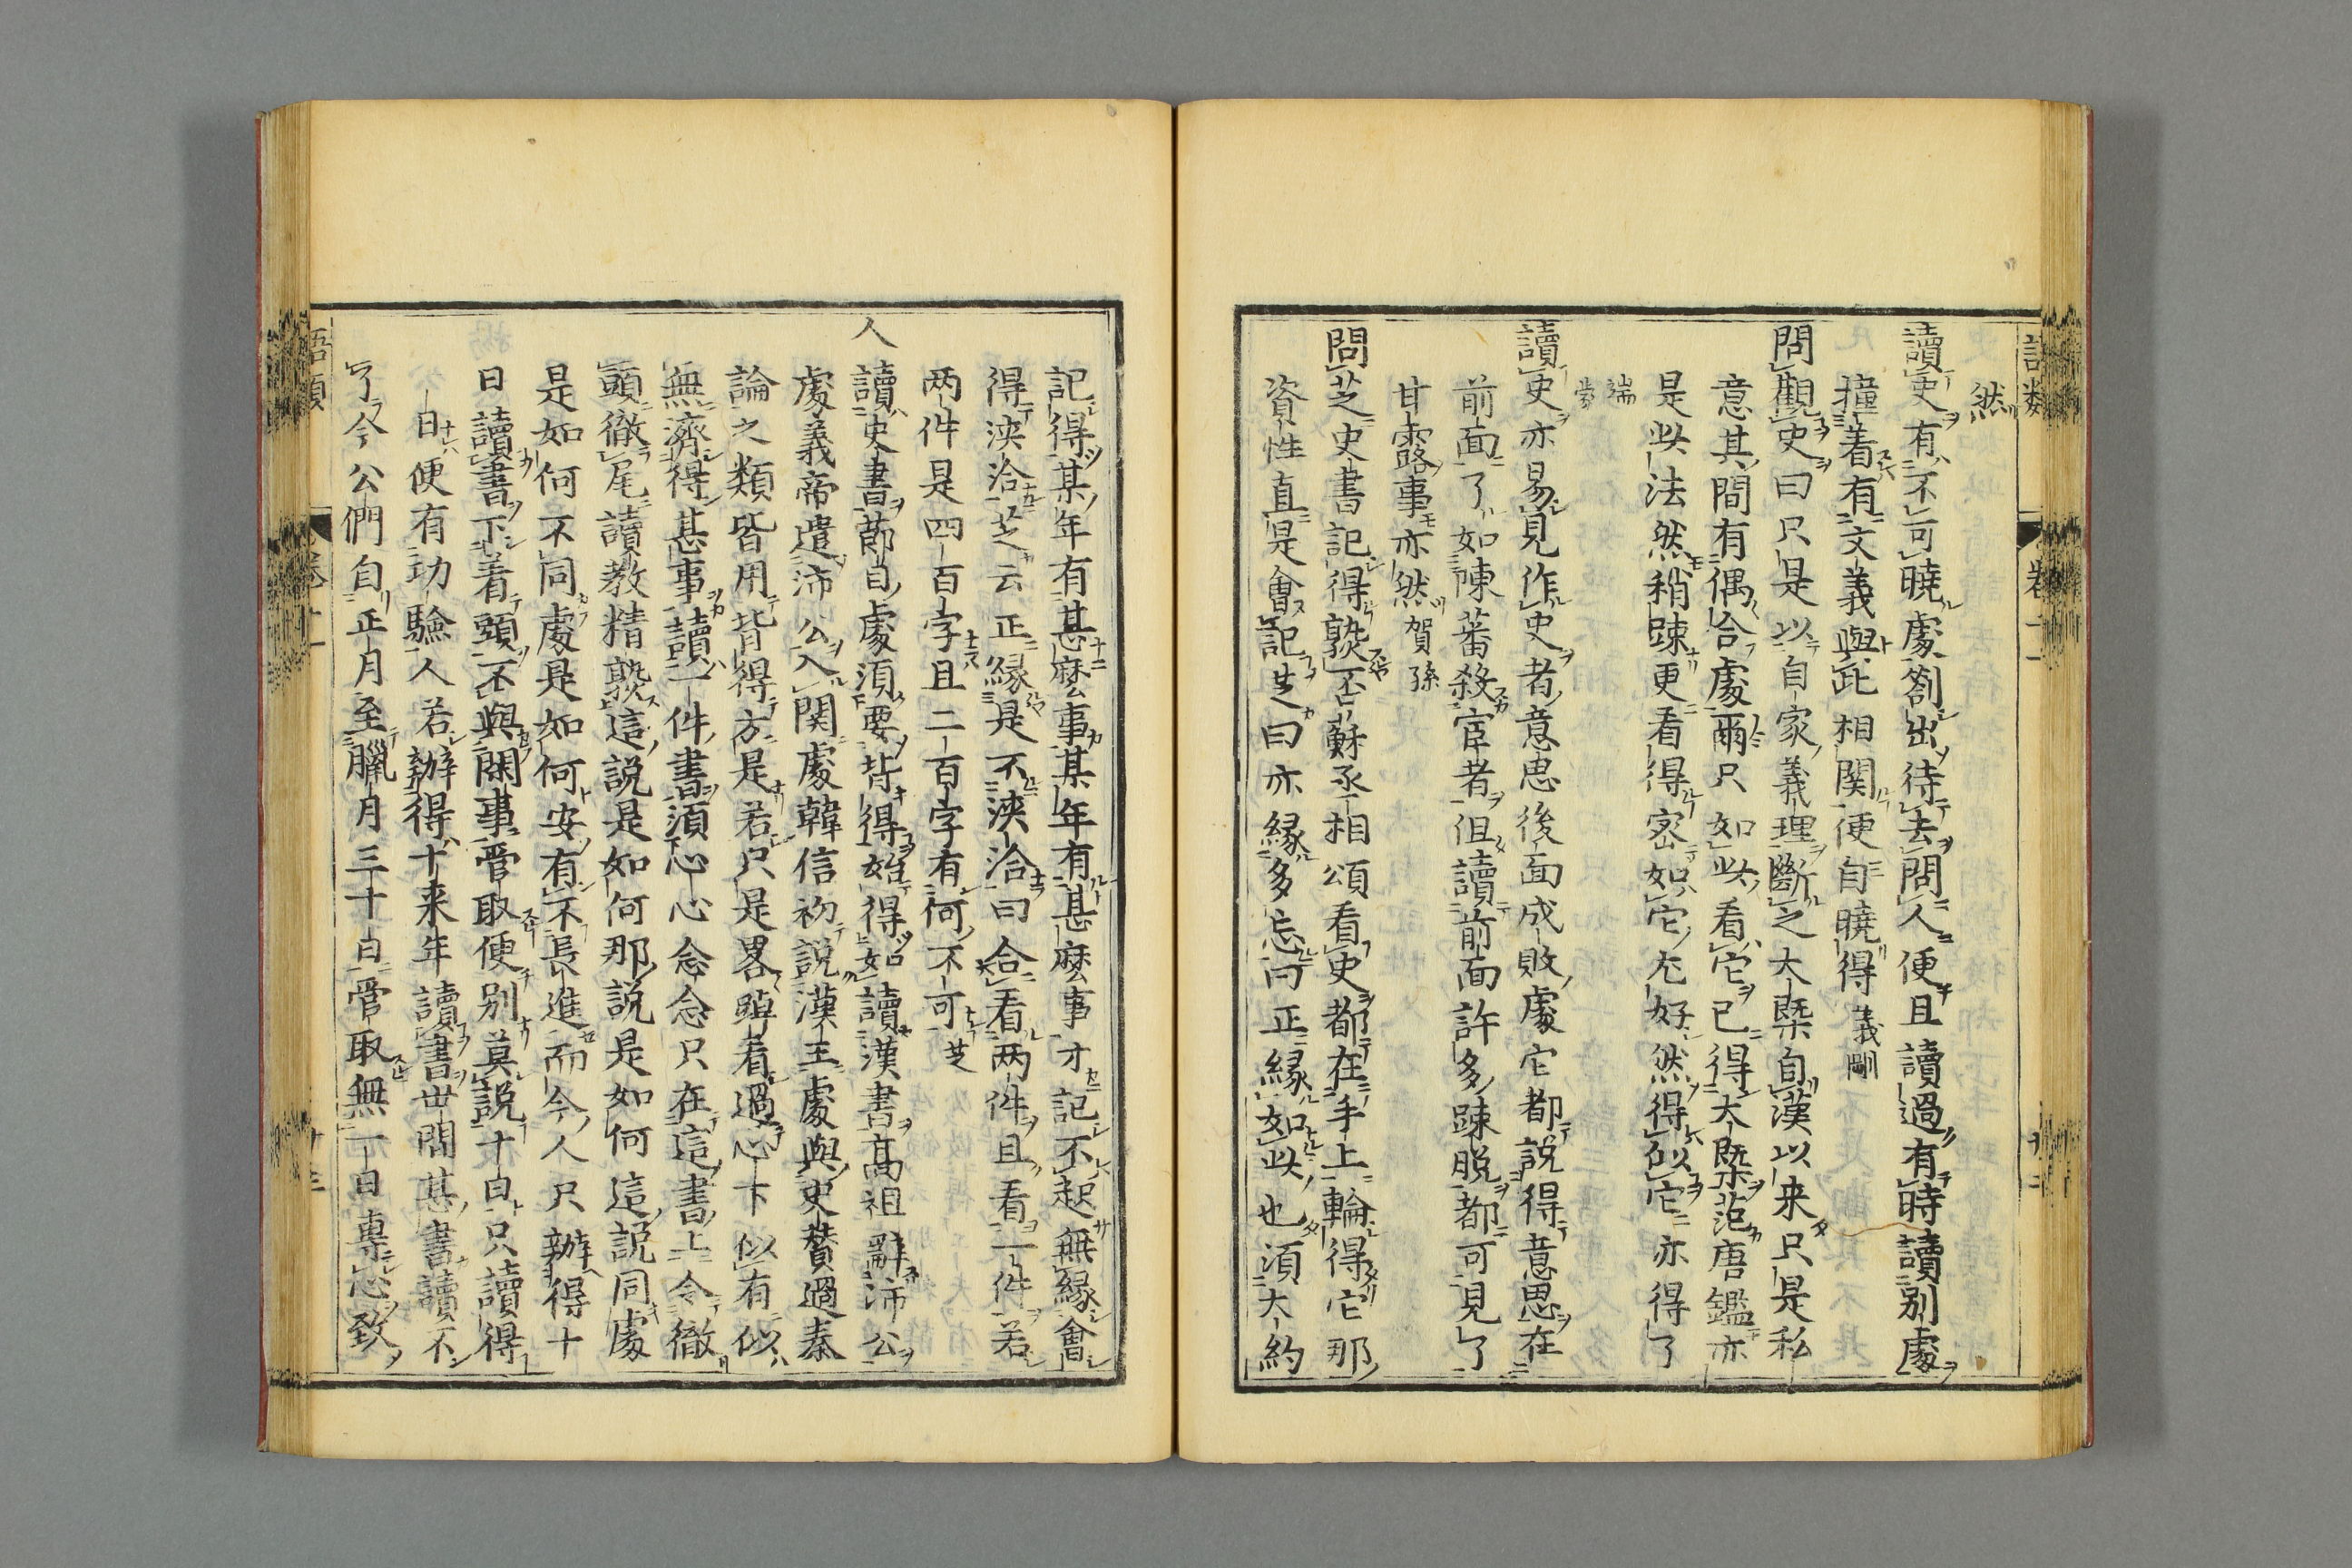 然
讀史有不可曉處劄出待去問人便且讀過有時讀別處
撞著有文義與此相關便自曉得義剛
問觀史曰只是以自家義理斷之大槩自漢以来只是私
意其間有偶合處爾只如此看它已得大槩范唐鑑亦
是此法然稍踈更看得密如它尤好然得似它亦得了
端蒙
讀史亦易見作史者意思後面成敗處它都說得意思在
前面了如陳蕃殺宦者但讀前面許多踈脱都可見了
甘露事亦然賀孫
問芝史書記得熟否蘇丞相頌看史都在手上輪得它那
資性直是會記芝曰亦縁多忘曰正縁如此也須大約
記得某年有甚麽事某年有甚麽事才記不起無縁會
得浹洽芝云正縁是不浹洽曰合看两件且看一件若
两件是四百字且二百字有何不可芝
人讀史書節目處須要背得始得如讀漢書高祖辭沛公
處義帝遣沛公入關處韓信初說漢王處與史贊過秦
論之類皆用背得方是若只是畧踔看過心下似有似
無濟得甚事讀一件書須心心念念只在這書上令徹
頭徹尾讀教精熟這說是如何那說是如何這說同處
是如何不同處是如何安有不長進而今人只辦得十
日讀書下着頭不與閑事管取便别莫説十日只讀得
一日便有功驗人若辦得十来年讀書世間甚書讀不
了今公們自正月至臘月三十日管取無一日專心致